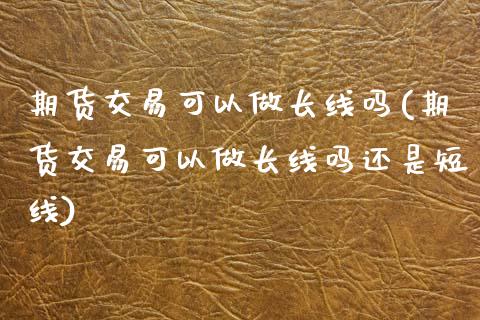 期货交易可以做长线吗(期
货交易可以做长线吗还是短
线)